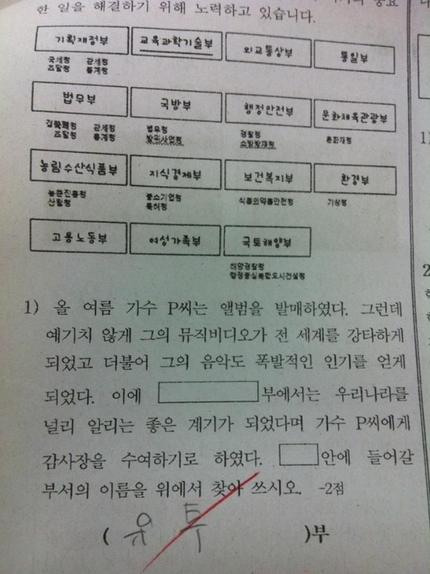 한 일을 해결하기 위해 노력하고 있습니다.
기획재정부 교육과학기술부 외교통상부 통일부
국세청 관세청
조달청 통계청
법무부 국방부 행정안전부 문화체육관광부
검찰청 관세청 병무청 경찰청 문화재청
조달청 통계청 방위사업청 소방방재청
농림수산식품부 지식경제부 보건복지부 환경부
농촌진흥청 중소기업청 식품의약품안전청 기상청
산림청 특허청
고용노동부 여성가족부 국토해양부
해양경찰청
행정중심복합도시건설청
1) 올 여름 가수 P씨는 앨범을 발매하였다. 그런데
예기치 않게 그의 뮤직비디오가 전 세계를 강타하게
되었고 더불어 그의 음악도 폭발적인 인기를 얻게
되었다. 이에 부에서는 우리나라를
널리 알리는 좋은 계기가 되었다며 가수 P씨에게
감사장을 수여하기로 하였다. 안에 들어갈
부서의 이름을 위에서 찾아 쓰시오. -2점
( 유튜 )부